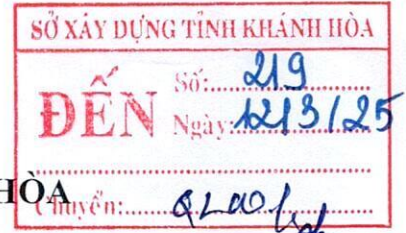 SỞ XÂY DỰNG TỈNH KHÁNH HÒA
ĐẾN
Số:.... 219
Ngày: 12/3/25
HÒA
Chuyển: